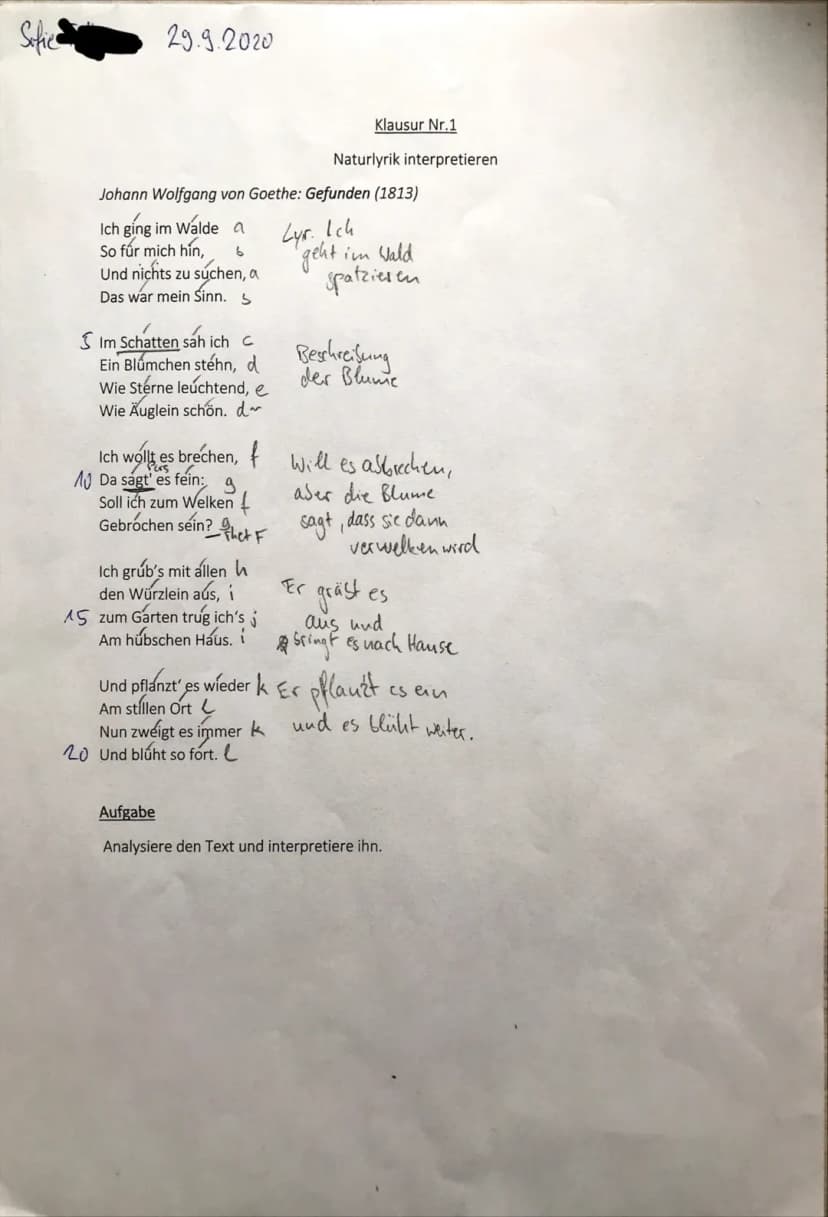 Sofie 29.9.2020
Klausur Nr.1
Naturlyrik interpretieren
Johann Wolfgang von Goethe: Gefunden (1813)
Ich ging im Walde a
So für mich hin, b
Und nichts zu suchen, a
Das war mein Sinn. b
Lyr. Ich
geht im Wald
spatzieren
5 Im Schatten sah ich c
Ein Blümchen stehn, d
Wie Sterne leuchtend, e
Wie Äuglein schön. d~
Beschreibung
der Blume
Ich wollt es brechen, f
Pers
10 Da sagt' es fein: g
Soll ich zum Welken f
Gebrochen sein? g
rhet F
Will es abbrechen,
aber die Blume
sagt, dass sie dann
verwelken wird
Ich grub's mit allen h
den Würzlein aus, i
15 zum Garten trug ich's j
Am hübschen Haus. i
Er gräbt es
aus und
bringt es nach Hause
Und pflanzt' es wieder k
Am stillen Ort l
Nun zweigt es immer k
20 Und blüht so fort. l
Er pflanzt es ein
und es blüht weiter.
Aufgabe
Analysiere den Text und interpretiere ihn.